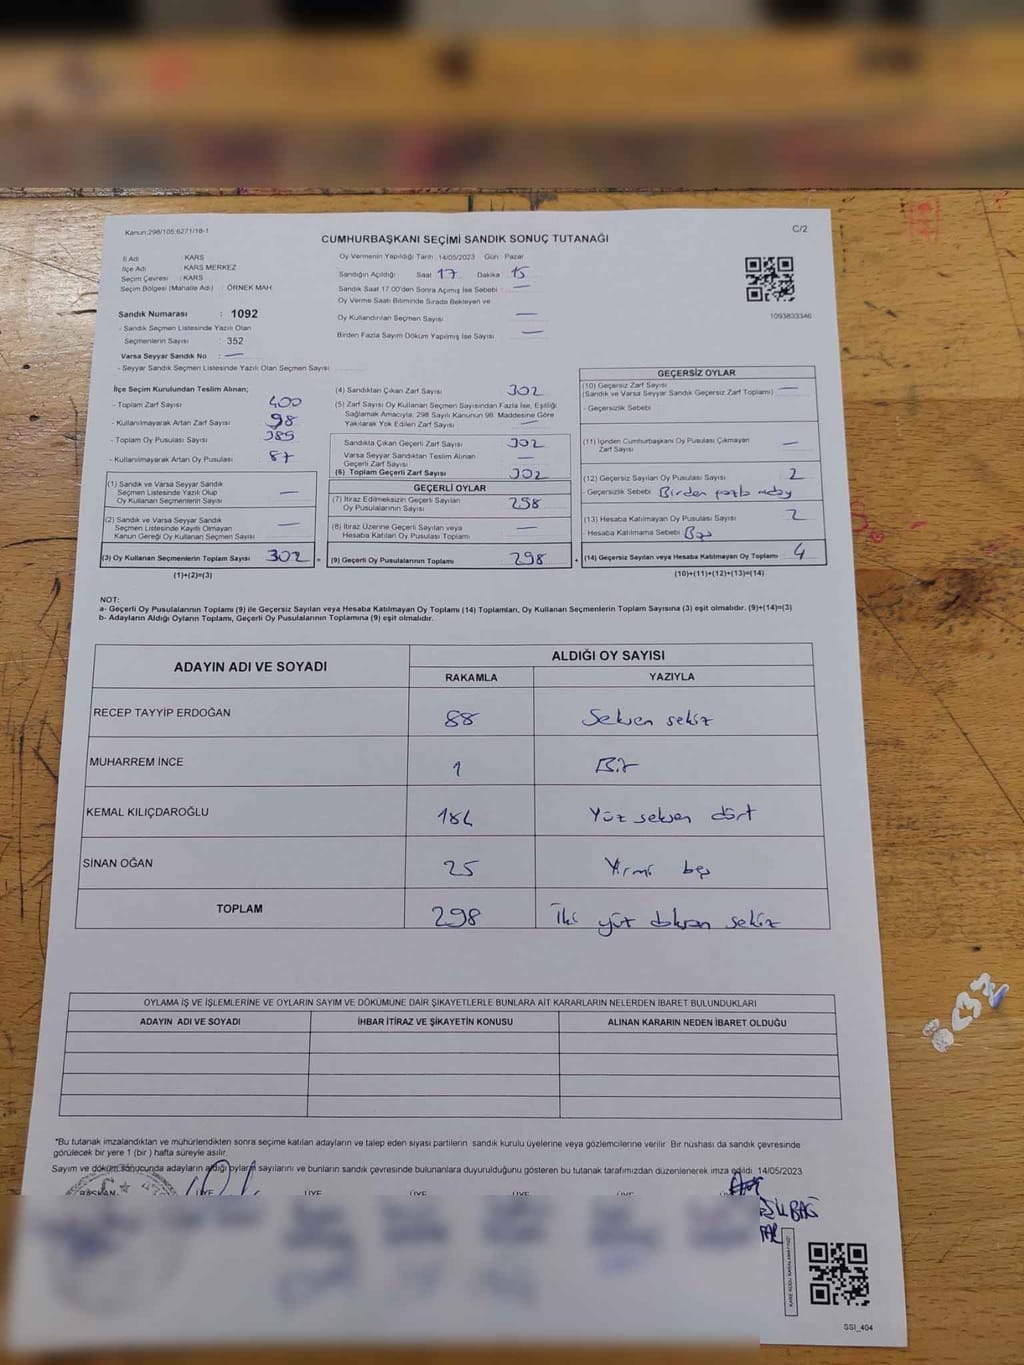 Kanun:298/105;6271/18-1
C/2
CUMHURBAŞKANI SEÇİMİ SANDIK SONUÇ TUTANAĞI
İl Adı : KARS
İlçe Adı : KARS MERKEZ
Seçim Çevresi : KARS
Seçim Bölgesi (Mahalle Adı) : ÖRNEK MAH
Sandık Numarası : 1092
- Sandık Seçmen Listesinde Yazılı Olan
Seçmenlerin Sayısı : 352
Varsa Seyyar Sandık No : —
- Seyyar Sandık Seçmen Listesinde Yazılı Olan Seçmen Sayısı
Oy Vermenin Yapıldığı Tarih :14/05/2023 Gün : Pazar
Sandığın Açıldığı Saat 17 Dakika 15
Sandık Saat 17.00'den Sonra Açmış İse Sebebi : —
Oy Verme Saati Bitiminde Sırada Bekleyen ve
Oy Kullandırılan Seçmen Sayısı —
Birden Fazla Sayım Döküm Yapılmış İse Sayısı —
1093833346
İlçe Seçim Kurulundan Teslim Alınan;
- Toplam Zarf Sayısı 400
- Kullanılmayarak Artan Zarf Sayısı 98
- Toplam Oy Pusulası Sayısı 385
- Kullanılmayarak Artan Oy Pusulası 87
(1) Sandık ve Varsa Seyyar Sandık
Seçmen Listesinde Yazılı Olup
Oy Kullanan Seçmenlerin Sayısı —
(2) Sandık ve Varsa Seyyar Sandık
Seçmen Listesinde Kayıtlı Olmayan
Kanun Gereği Oy Kullanan Seçmen Sayısı —
(3) Oy Kullanan Seçmenlerin Toplam Sayısı 302 =
(1)+(2)=(3)
(4) Sandıktan Çıkan Zarf Sayısı 302
(5) Zarf Sayısı Oy Kullanan Seçmen Sayısından Fazla İse, Eşitliği
Sağlamak Amacıyla, 298 Sayılı Kanunun 98. Maddesine Göre
Yakılarak Yok Edilen Zarf Sayısı —
Sandıkta Çıkan Geçerli Zarf Sayısı 302
Varsa Seyyar Sandıktan Teslim Alınan
Geçerli Zarf Sayısı —
(6) Toplam Geçerli Zarf Sayısı 302
GEÇERLİ OYLAR
(7) İtiraz Edilmeksizin Geçerli Sayılan
Oy Pusulasının Sayısı 298
(8) İtiraz Üzerine Geçerli Sayılan veya
Hesaba Katılan Oy Pusulası Toplamı —
(9) Geçerli Oy Pusulalarının Toplamı 298 +
GEÇERSİZ OYLAR
(10) Geçersiz Zarf Sayısı
(Sandık ve Varsa Seyyar Sandık Geçersiz Zarf Toplamı) —
- Geçersizlik Sebebi
(11) İçinden Cumhurbaşkanı Oy Pusulası Çıkmayan
Zarf Sayısı —
(12) Geçersiz Sayılan Oy Pusulası Sayısı 2
- Geçersizlik Sebebi Birden fazla
(13) Hesaba Katılmayan Oy Pusulası Sayısı 2
- Hesaba Katılmama Sebebi Boş
(14) Geçersiz Sayılan veya Hesaba Katılmayan Oy Toplamı 4
(10)+(11)+(12)+(13)=(14)
NOT:
a- Geçerli Oy Pusulalarının Toplamı (9) ile Geçersiz Sayılan veya Hesaba Katılmayan Oy Toplamı (14) Toplamları, Oy Kullanan Seçmenlerin Toplam Sayısına (3) eşit olmalıdır. (9)+(14)=(3)
b- Adayların Aldığı Oyların Toplamı, Geçerli Oy Pusulalarının Toplamına (9) eşit olmalıdır.
ADAYIN ADI VE SOYADI
ALDIĞI OY SAYISI
RAKAMLA YAZIYLA
RECEP TAYYİP ERDOĞAN 88 Seksen sekiz
MUHARREM İNCE 1 Bir
KEMAL KILIÇDAROĞLU 184 Yüz seksen dört
SİNAN OĞAN 25 Yirmi beş
TOPLAM 298 İki yüz doksan sekiz
OYLAMA İŞ VE İŞLEMLERİNE VE OYLARIN SAYIM VE DÖKÜMÜNE DAİR ŞİKAYETLERLE BUNLARA AİT KARARLARIN NELERDEN İBARET BULUNDUKLARI
ADAYIN ADI VE SOYADI İHBAR İTİRAZ VE ŞİKAYETİN KONUSU ALINAN KARARIN NEDEN İBARET OLDUĞU
*Bu tutanak imzalandıktan ve mühürlendikten sonra seçime katılan adayların ve talep eden siyasi partilerin sandık kurulu üyelerine veya gözlemcilerine verilir. Bir nüshası da sandık çevresinde
görülecek bir yere 1 (bir ) hafta süreyle asılır.
Sayım ve döküm sonucunda adayların aldığı oyların sayılarını ve bunların sandık çevresinde bulunanlara duyurulduğunu gösteren bu tutanak tarafımızdan düzenlenerek imza edildi. 14/05/2023
BAŞKAN ÜYE ÜYE ÜYE ÜYE ÜYE
SSI_404